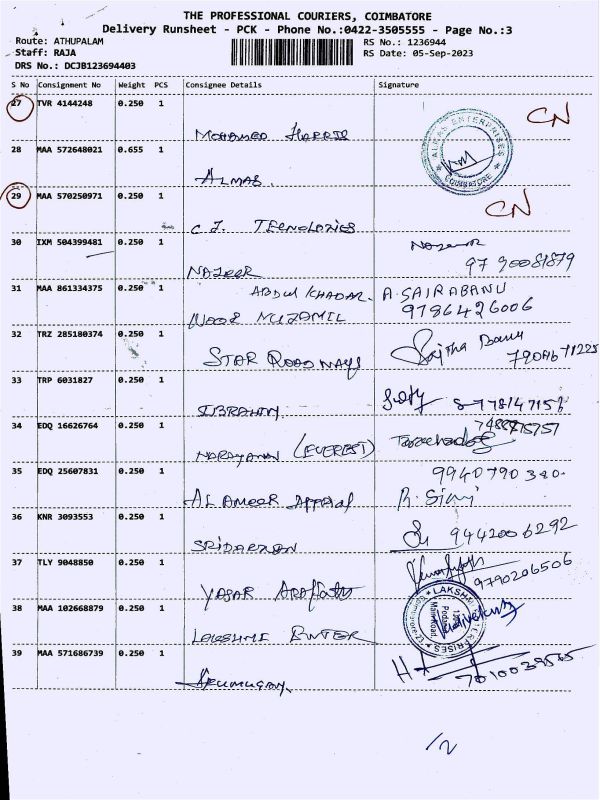 THE PROFESSIONAL COURIERS, COIMBATORE
Delivery Runsheet - PCK - Phone No.:0422-3505555 - Page No.:3
Route: ATHUPALAM RS No.: 1236944
Staff: RAJA RS Date: 05-Sep-2023
DRS No.: DCJB123694403
S No Consignment No Weight PCS Consignee Details Signature
27 TVR 4144248 0.250 1 CN
MOHAMED HARRIS
28 MAA 572648021 0.655 1 ALMAS ENTERPRISES COIMBATORE
ALMAS
29 MAA 570250971 0.250 1 CN
C J. TECNOLOGIES
30 IXM 504399481 0.250 1
NAZEER 97 90081879
31 MAA 861334375 0.250 1 ABDUL KHADAR. A. SAIRABANU
NOOR MUZAMIL 9786426006
32 TRZ 285180374 0.250 1 Sajitha Banu
STAR ROAD WAYS
33 TRP 6031827 0.250 1
34 EDQ 16626764 0.250 1
NARAYANAN (EVEREST)
35 EDQ 25607831 0.250 1 9940790380.
AL AMEER
36 KNR 3093553 0.250 1 9442006292
SRIDARRAN
37 TLY 9048850 0.250 1 9790206506
YASAR ARAFATH
38 MAA 102668879 0.250 1 LAKSHMI
LAKSHMI ENTER
39 MAA 571686739 0.250 1
ARUMUGAM 7010039565
/2